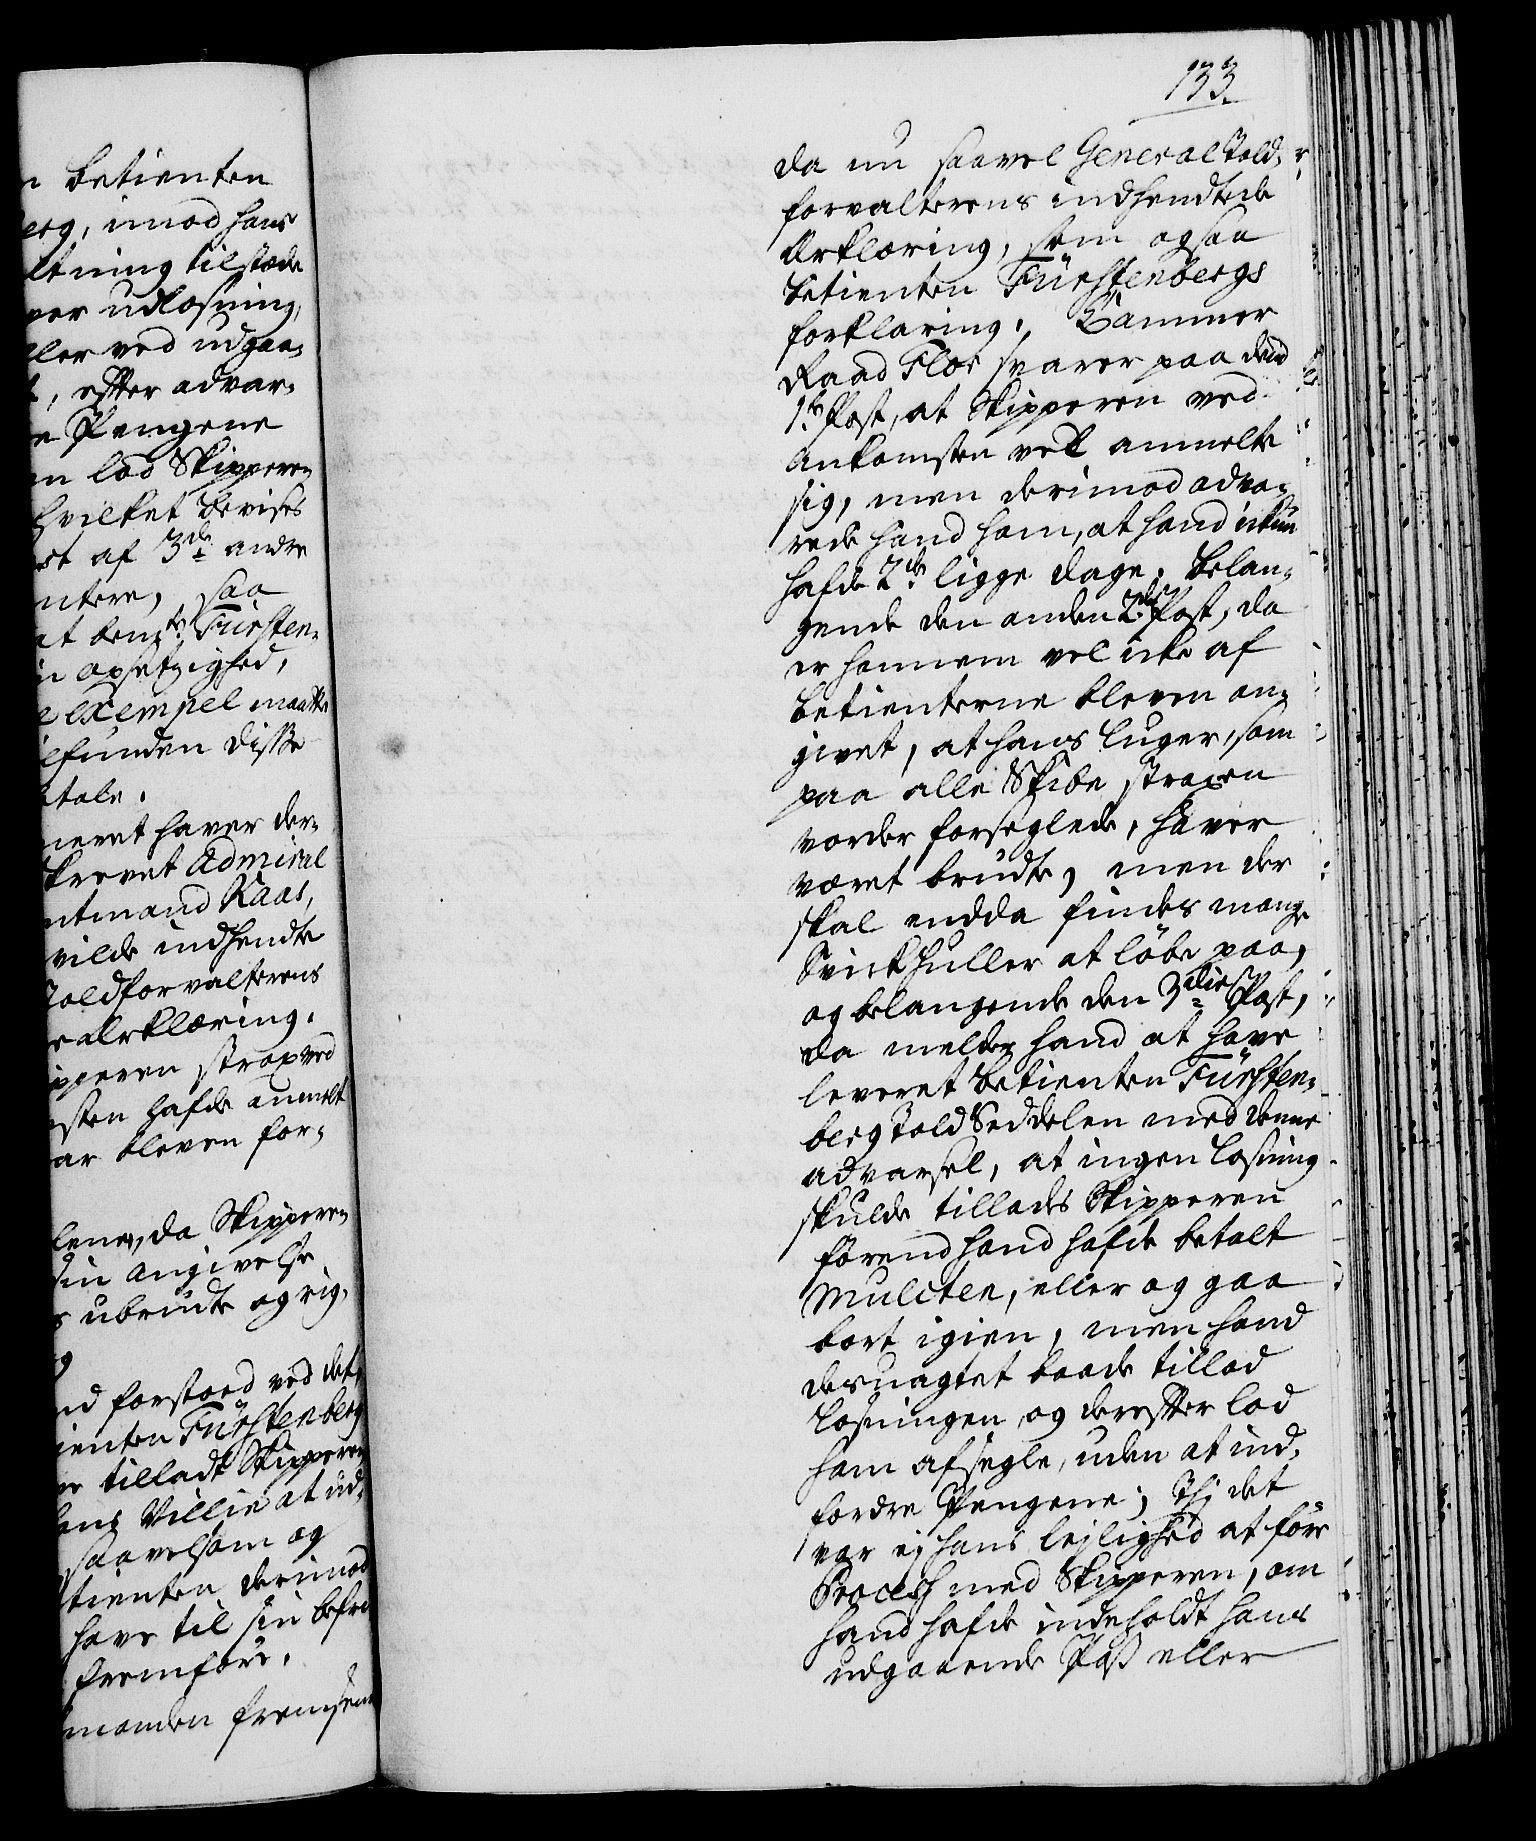 133.
betienten
erg, imod hans
ltning tilstæde
per udlosning,
ller ved udgaa-
, efter advar-
e Pengene
en lod Skipperen
hvilket bevises
st af 3de andre
ntere, saa
at bemte Fürsten-
n opsetzighed,
exempel maatte
lfunden disse
tale.
neret haver der-
skrevet Admiral
ntmand Kaas,
vilde indhendte
Toldforvalterens
e Erklæring.
pperen strax ved
sten hafde anmelt
ar bleven for-
lene, da Skipperen
sin angivelse
s ubrudte og rig-
g
nd forstoed ved det,
ienten Fürstenberg
er tilladt Skipperen
ens Villie at ud-
saavelsom og
tienten derimod
have til sin befri
fremføre.
manden fremsen
da nu saavel General Told-
forvalterens indhendtede
Erklæring, som ogsaa
betienten Fürstenbergs
forklaring, Cammer
Raad Floer svarer paa dend
1te Post, at Skipperen ved
Ankomsten vel anmelte
sig, men derimod adva-
rede hand ham, at hand ickun
hafde 2de ligge dage. Belan-
gende den anden 2den Post, da
er hannem vel icke af
betienterne bleven an-
givet, at hans luger, som
paa alle Skibe straxen
vorder forseglede, haver
været brudte, men der
skal endda findes mange
Svickhuller at løbe paa,
og belangende den 3die Post,
da melder hand at have
leveret betienten Fürsten-
berg Told Seddelen med denne
advarsel, at ingen losning
skulde tillades Skipperen
førend hand hafde betalt
Mulcten, eller og gaa
bort igien, men hand
desuagtet baade tillod
losningen og derefter lod
ham afsegle, uden at ind-
fordre Pengene; Thj det
var ej hans lejlighed at føre
Process med Skipperen, om
hand hafde indeholdt hans
udgaaende Pass eller